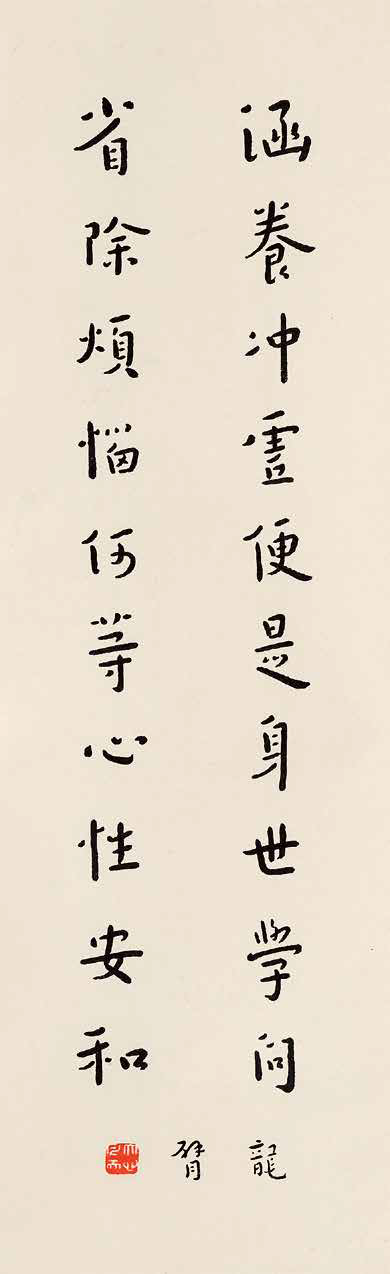 涵養冲虛便是身世學問
省除煩惱何等心性安和
龍臂